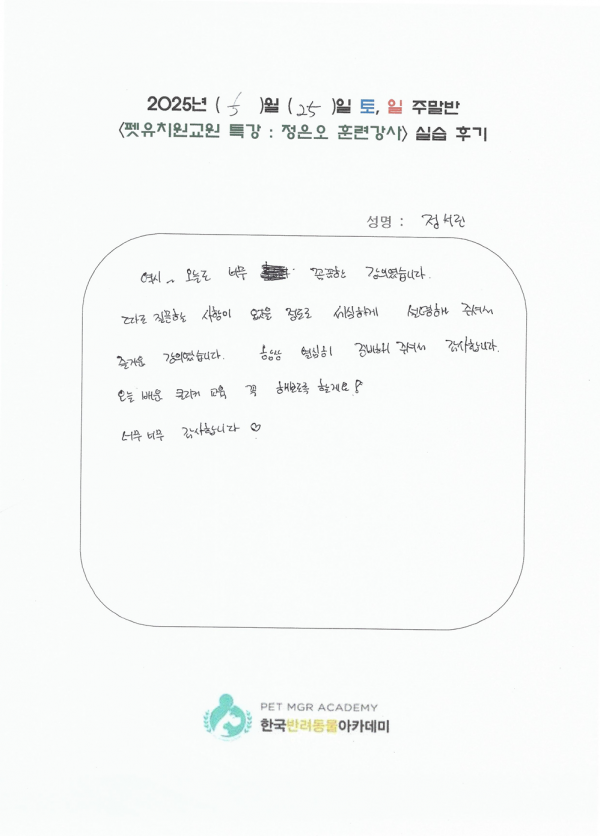 2025년 ( 5 )월 ( 25 )일 토, 일 주말반
<펫유치원교원 특강 : 정은오 훈련강사> 실습 후기
성명 : 정서린
역시.. 오늘도 너무 꼼꼼한 강의였습니다.
따로 질문하는 사항이 없을 정도로 세심하게 설명해 주셔서
즐거운 강의였습니다. 항상 열심히 준비해 주셔서 감사합니다.
오늘 배운 클리커 교육 꼭 해보도록 할게요!
너무너무 감사합니다 ♡
PET MGR ACADEMY
한국반려동물아카데미